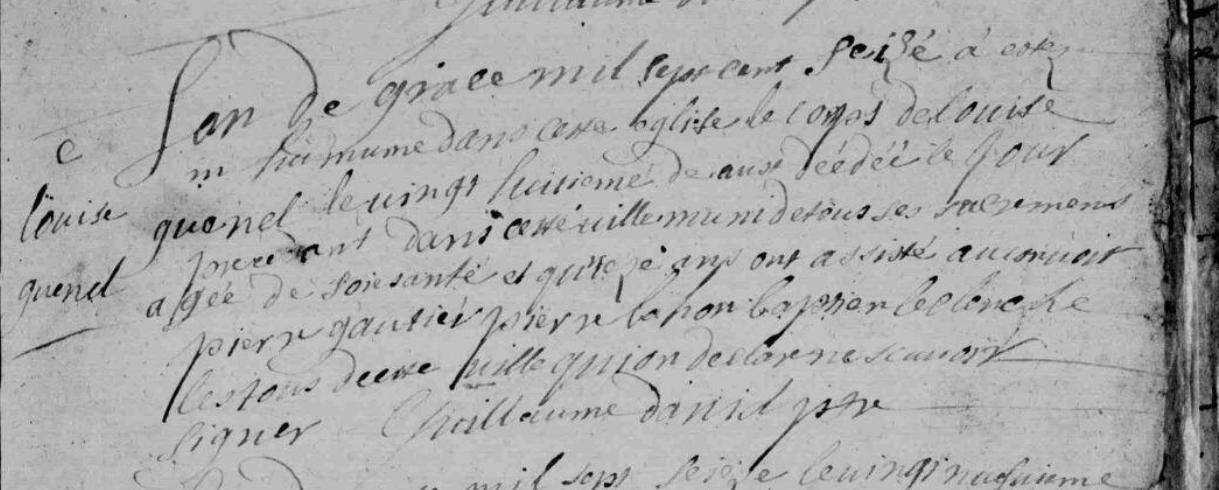 Guillaume
Lan De grace mil sept cent seize à este
e
in humume dans cette eglise le corps de louise
louise
quenel le vingt huitieme de aust déédéé le jour
precedant dans cette ville muni de tous ses sacrements
quenel
agéé de soiesante et quinze ans ont assisté au convoit
pierre gautier pierre lohon
les tous de cette ville qui on declar ne scavoir
signer Guillaume daniel ptr
mil sept seize le vingt neufuieme